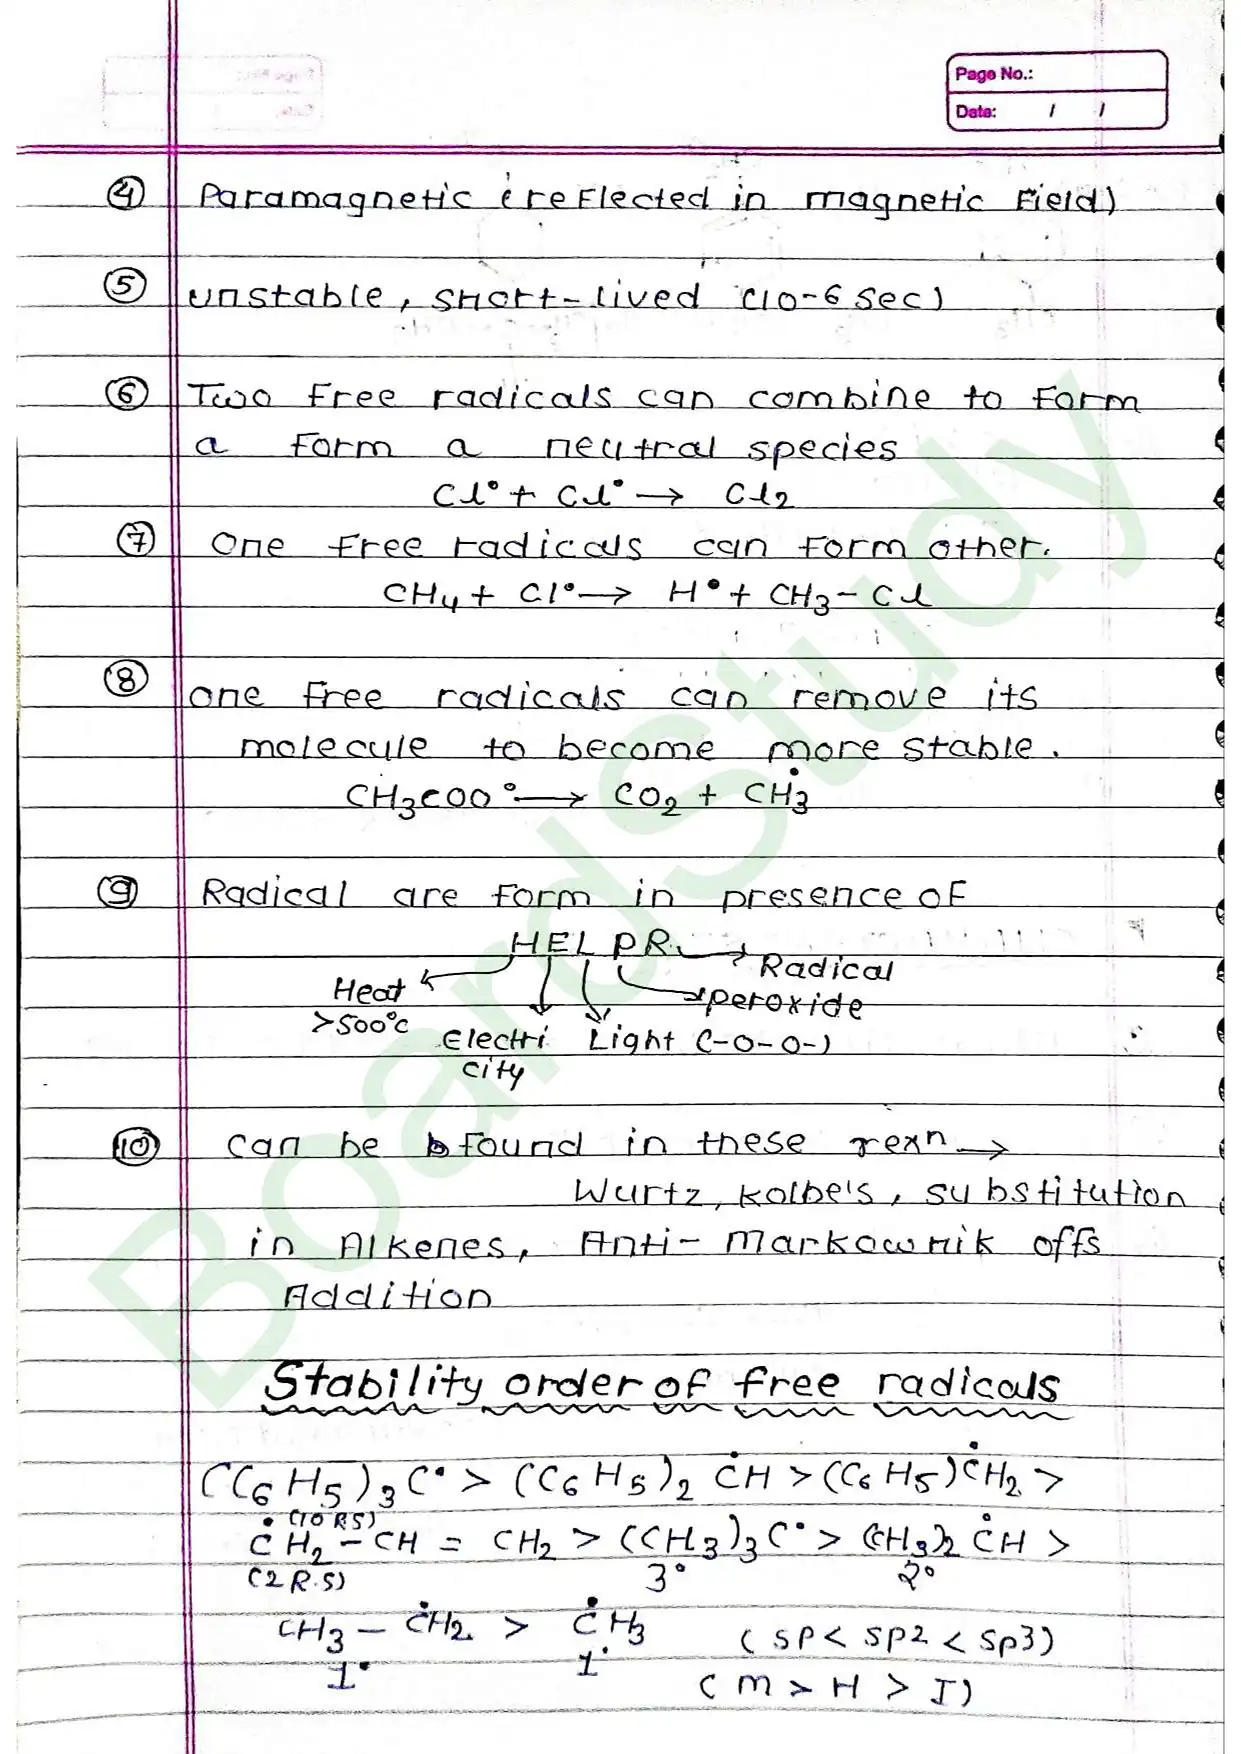 Page No.:
Date: / /
④ Paramagnetic (reflected in magnetic Field)
⑤ unstable, short-lived (10-6 sec)
⑥ Two free radicals can combine to form
a form a neutral species
Cl• + Cl• → Cl2
⑦ One free radicals can form other.
CH4 + Cl• → H• + CH3 - Cl
⑧ one free radicals can remove its
molecule to become more stable.
CH3COO• → CO2 + ĊH3
⑨ Radical are form in presence of
HELPR → Radical
Heat peroxide
>500°C Electri Light (-O-O-)
city
⑩ can be found in these rexn →
Wurtz, Kolbe's, substitution
in Alkenes, Anti-markownik offs
Addition
Stability order of free radicals
(C6H5)3C• > (C6H5)2ĊH > (C6H5)ĊH2 >
(10 RS)
ĊH2 - CH = CH2 > (CH3)3C• > (CH3)2ĊH >
(2 R.S) 3° 2°
CH3 - ĊH2 > ĊH3 (sp < sp2 < sp3)
1• 1• (m > H > I)
BoardStudy